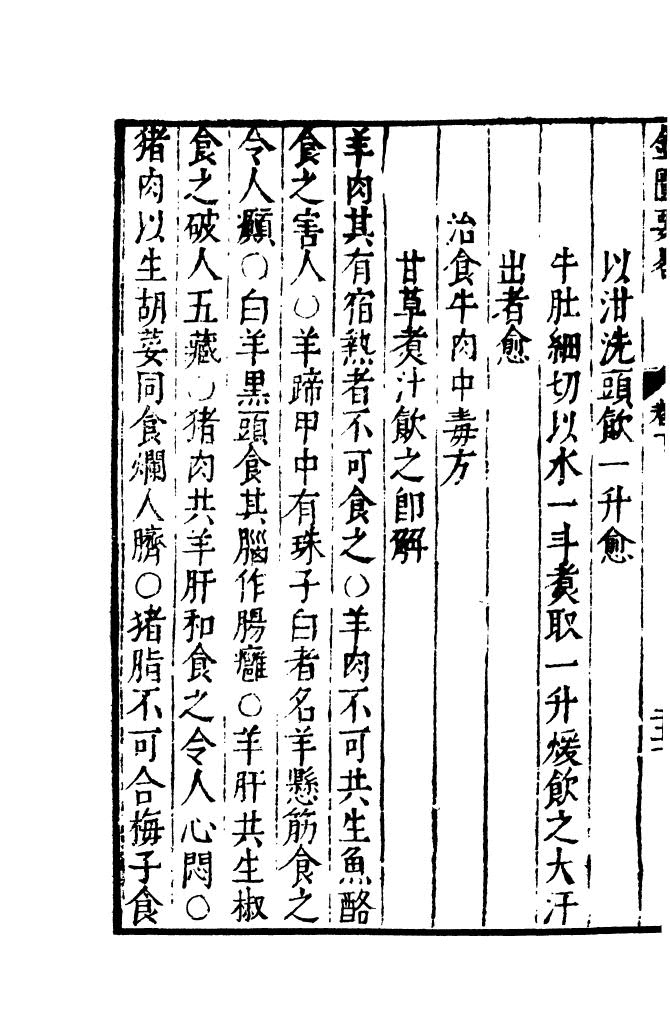 金匱要略 卷下
以泔洗頭飲一升愈
牛肚細切以水一斗煑取一升煖飲之大汗
出者愈
治食牛肉中毒方
甘草煑汁飲之卽解
羊肉其有宿熱者不可食之○羊肉不可共生魚酪
食之害人○羊蹄甲中有珠子白者名羊懸筋食之
令人癲○白羊黑頭食其腦作腸癰○羊肝共生椒
食之破人五藏○猪肉共羊肝和食之令人心悶○
猪肉以生胡荽同食爛人臍○猪脂不可合梅子食